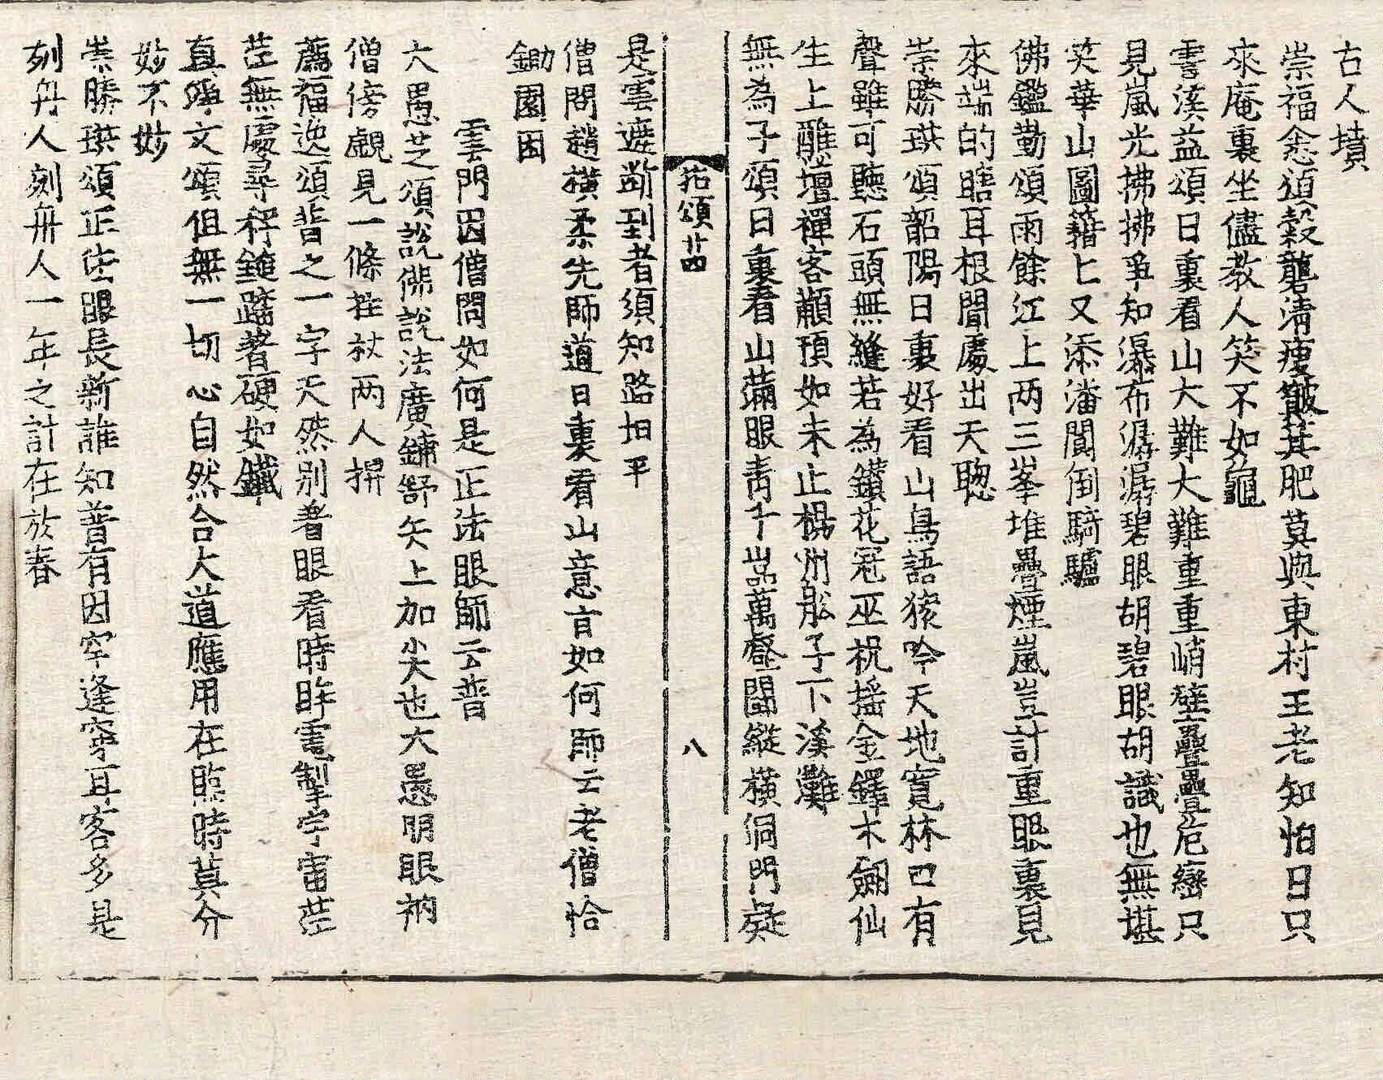 古人墳
崇福悆頌磬龍清瘦皺箕肥莫與東村王老知怕日只
來庵裏坐儘教人笑不如龜
雪溪益頌日裏看山大難大難重重峭壁疊疊危巒只
見嵐光拂拂爭知瀑布潺潺碧眼胡碧眼胡識也無堪
笑華山圖籍上又添潘閬倒騎驢
佛鑑勤頌雨餘江上两三峯堆疊煙嵐豈計重眼裏見
來端的瞎耳根聞處出天聰
崇勝珙頌韶陽日裏好看山鳥語猿吟天地寬林口有
聲雖可聽石頭無縫若為鑽花冠巫祝搖金鐸木劍仙
生上醮壇禪客顢頇如未止楊州舩子下溪灘
無為子頌日裏看山滿眼青千嵓萬壑鬪縱橫洞門疑
拈頌廿四
八
是雲遮斷到者須知路坦平
僧問趙橫柔先師道日裏看山意旨如何師云老僧恰
鋤園囙
雲門因僧問如何是正法眼師云普
大愚芝頌說佛說法廣鋪舒矢上加尖也大愚明眼衲
僧傍覷見一條拄杖两人搘
薦福逸頌普之一字天然别著眼看時眸電掣宇宙茫
茫無處尋秤鎚踏著硬如鐵
真淨文頌但無一切心自然合大道應用在臨時莫分
妙不妙
崇勝珙頌正法眼長新誰知普有因罕逢穿耳客多是
刻舟人刻舟人一年之計在於春